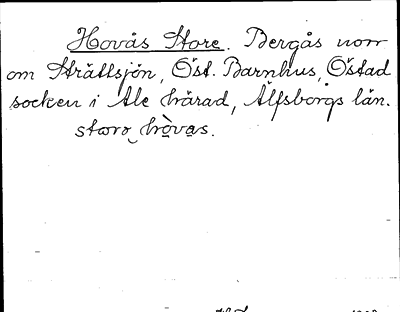 Hovås Store. Bergås norr
om Strättsjön, Öst. Barnhus, Östad
socken i Ale härad, Älfsborgs län.
storo hòvas.